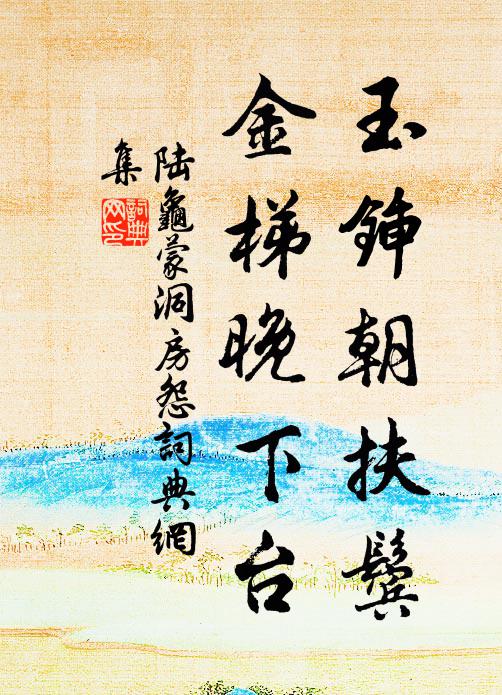 玉鈿朝扶鬢
金梯晚下台
陆龜蒙洞房怨詞典網
集
詞典
网印